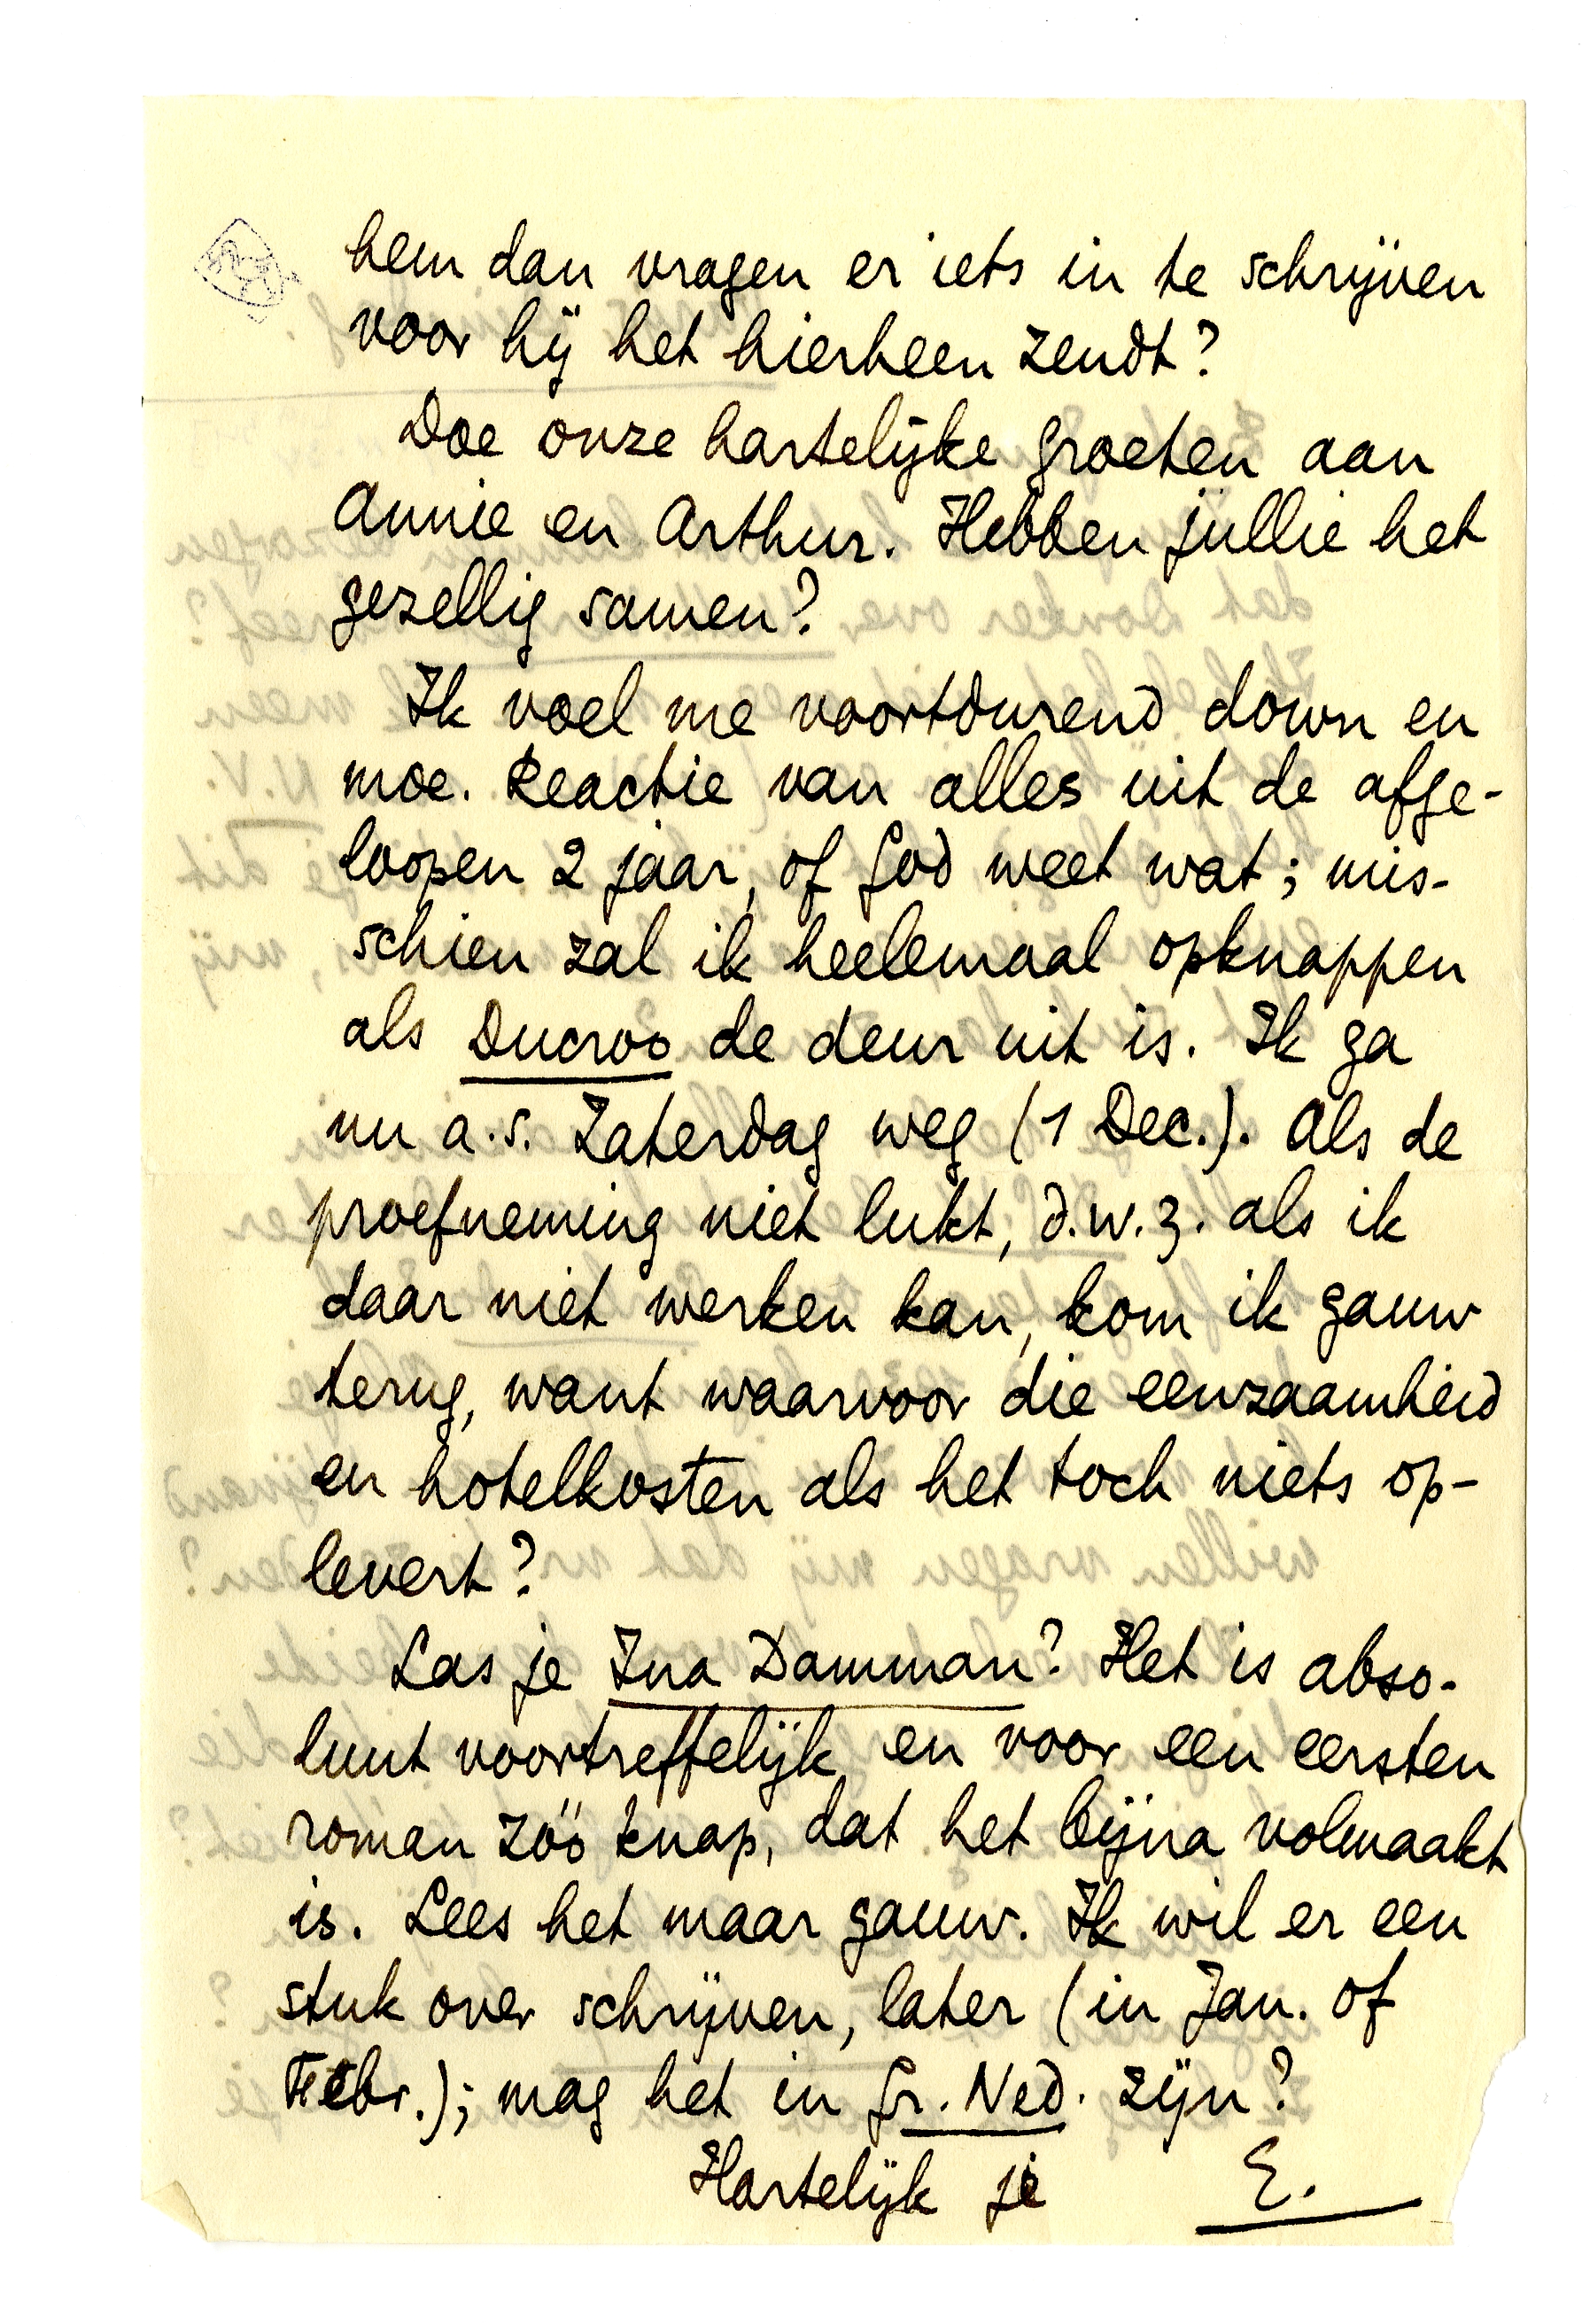 hem dan vragen er iets in te schrijven
voor hij het hierheen zendt?
Doe onze hartelijke groeten aan
Annie en Arthur. Hebben jullie het
gezellig samen?
Ik voel me voortdurend down en
moe. Reactie van alles uit de afge-
loopen 2 jaar, of God weet wat; mis-
schien zal ik heelemaal opknappen
als Ducroo de deur uit is. Ik ga
nu a.s. Zaterdag weg (1 Dec.). Als de
proefneming niet lukt, d.w.z. als ik
daar niet werken kan, kom ik gauw
terug, want waarvoor die eenzaamheid
en hotelkosten als het toch niets op-
levert?
Las je Ina Damman? Het is abso-
luut voortreffelijk en voor een eersten
roman zóó knap, dat het bijna volmaakt
is. Lees het maar gauw. Ik wil er een
stuk over schrijven, later (in Jan. of
Febr.); mag het in Gr. Ned. zijn?
Hartelijk je E.